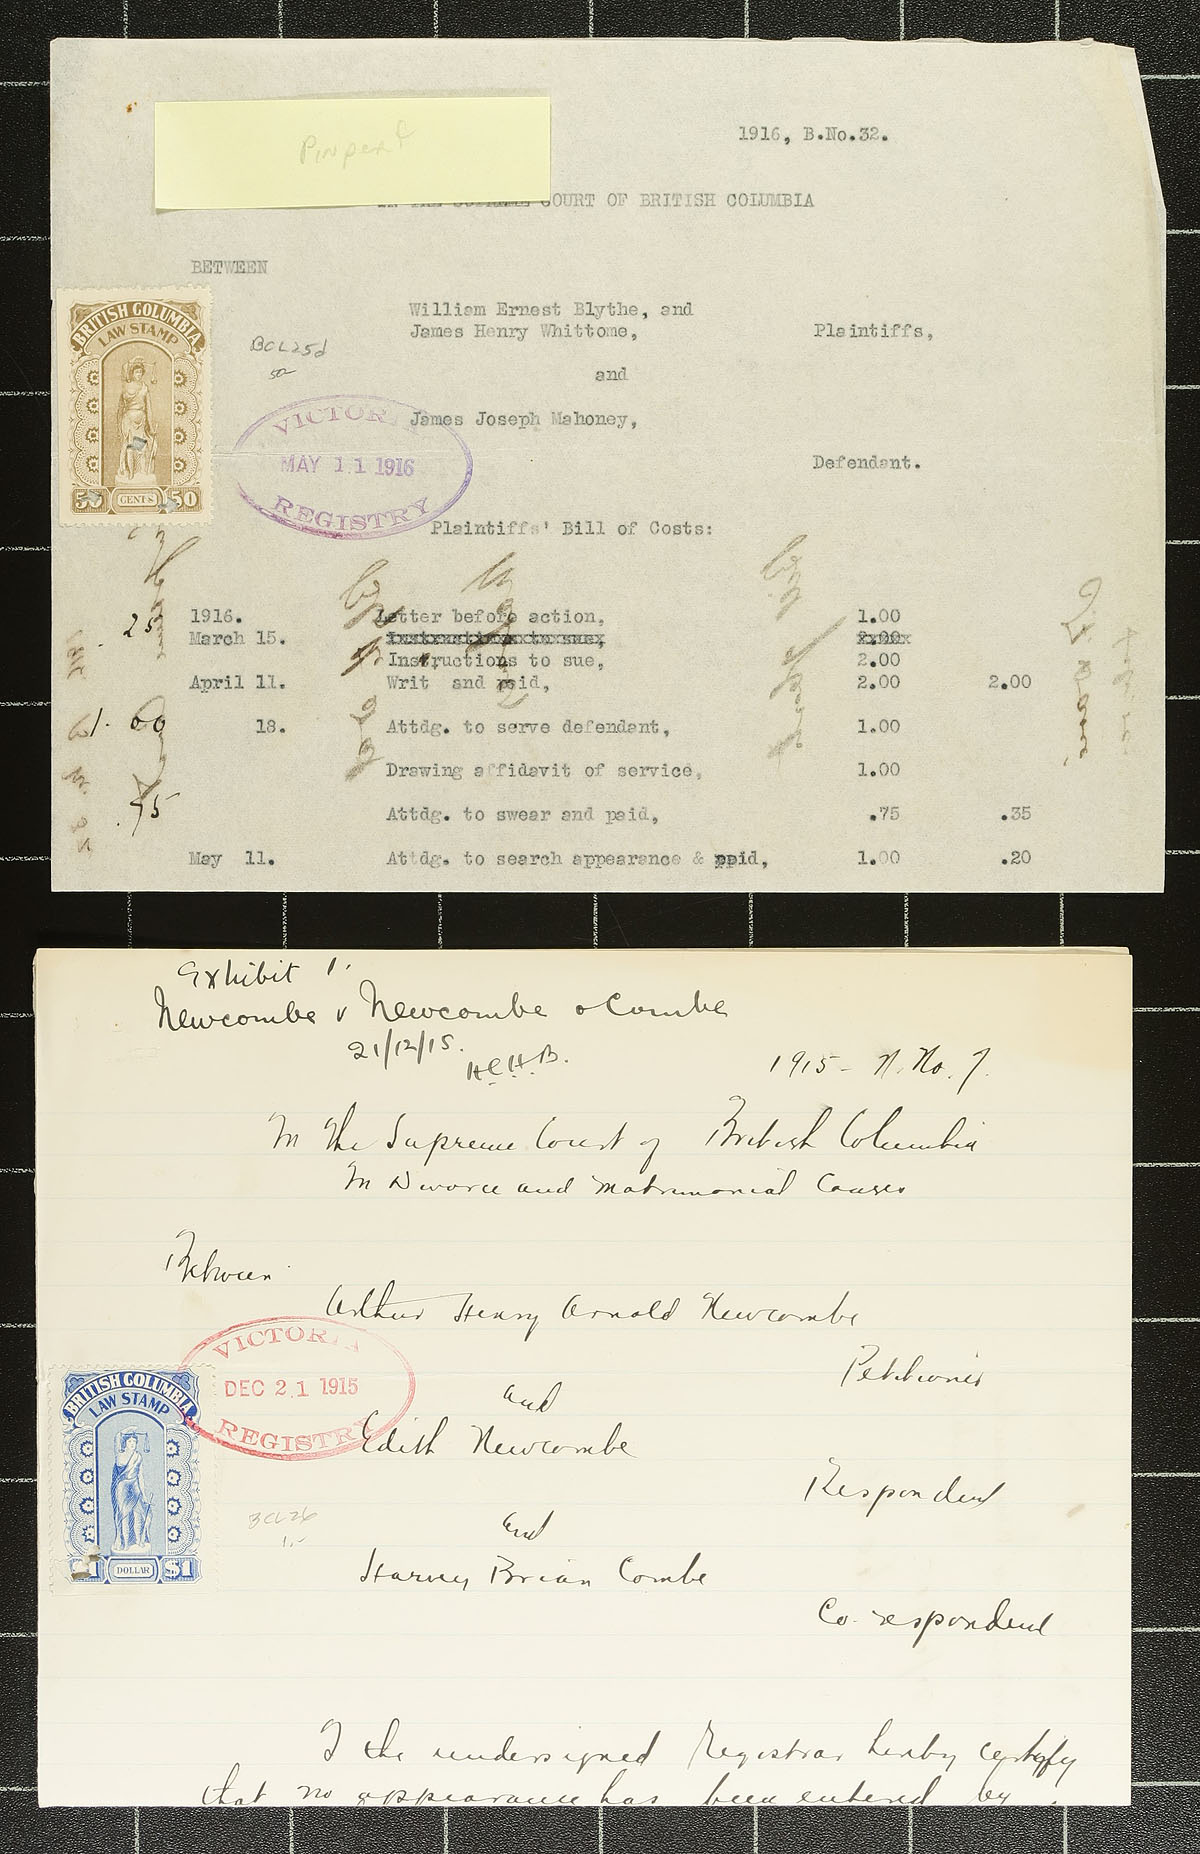 Pinperf
1916, B.No.32.
IN THE SUPREME COURT OF BRITISH COLUMBIA
BETWEEN
William Ernest Blythe, and
James Henry Whittome,
Plaintiffs,
and
James Joseph Mahoney,
Defendant.
BRITISH COLUMBIA
LAW STAMP
50 CENTS 50
BCL25d
50-
VICTORIA
MAY 11 1916
REGISTRY
Plaintiffs' Bill of Costs:
1916. Letter before action, 1.00
25
March 15. Instructions to sue, 2.00
Instructions to sue, 2.00
April 11. Writ and paid, 2.00 2.00
1.00
18. Attdg. to serve defendant, 1.00
Drawing affidavit of service, 1.00
.75
Attdg. to swear and paid, .75 .35
May 11. Attdg. to search appearance & ppid, 1.00 .20
Exhibit 1.
Newcombe v Newcombe & Combe
21/12/15.
H.C.H.B.
1915 - N. No. 7.
In the Supreme Court of British Columbia
In Divorce and Matrimonial Causes
Between
Arthur Henry Arnold Newcombe
Petitioner
VICTORIA
DEC 21 1915
REGISTRY
and
Edith Newcombe
Respondent
BRITISH COLUMBIA
LAW STAMP
$1 DOLLAR $1
BCL26
1.-
and
Harvey Brian Combe
Co-respondent
I the undersigned Registrar hereby certify
that no appearance has been entered by